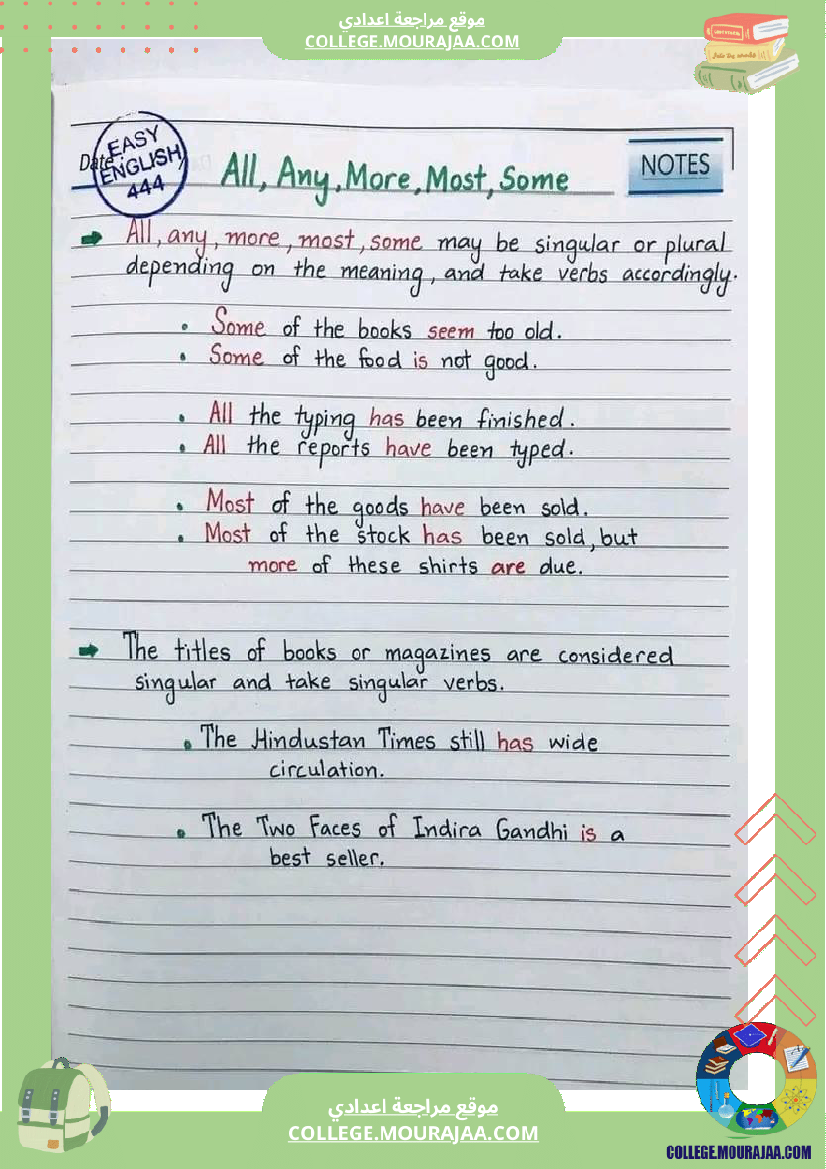 موقع مراجعة اعدادي
COLLEGE.MOURAJAA.COM
Date:
EASY
ENGLISH
444
All, Any, More, Most, Some
NOTES
All, any, more, most, some may be singular or plural
depending on the meaning, and take verbs accordingly.
• Some of the books seem too old.
• Some of the food is not good.
• All the typing has been finished.
• All the reports have been typed.
• Most of the goods have been sold.
• Most of the stock has been sold, but
more of these shirts are due.
The titles of books or magazines are considered
singular and take singular verbs.
• The Hindustan Times still has wide
circulation.
• The Two Faces of Indira Gandhi is a
best seller.
موقع مراجعة اعدادي
COLLEGE.MOURAJAA.COM
COLLEGE.MOURAJAA.COM